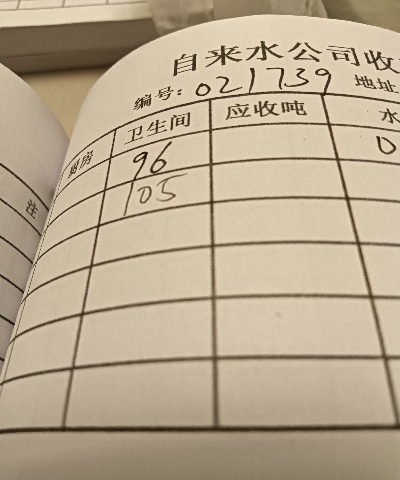 自来水公司收
编号: 021739 地址
厨房 卫生间 应收吨 水
96 0
105
注